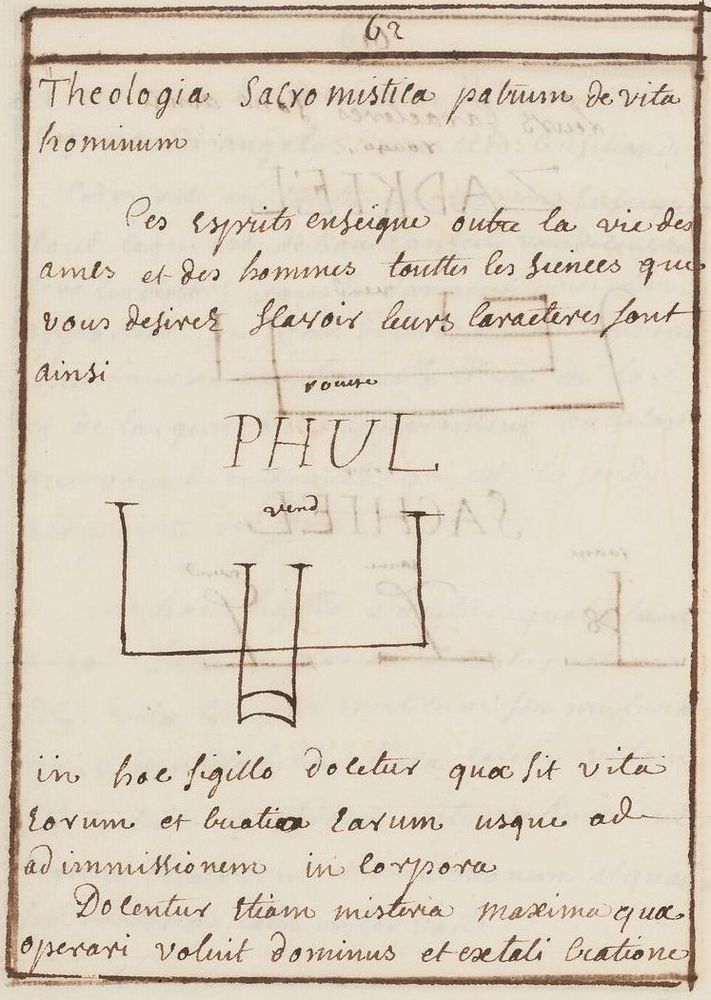 62
Theologia Sacro mistica patrum de vita
hominum
Ces Esprits enseigne outre la vie des
ames et des hommes touttes les siences que
vous desirez scavoir leurs caracteres sont
ainsi
rouge
PHUL
verd
in hoc sigillo docetur quæ sit vita
Eorum et Earum usque ad
ad immissionem in corpora
Docentur Etiam misteria maxima quæ
operari voluit dominus et ex tali creatione